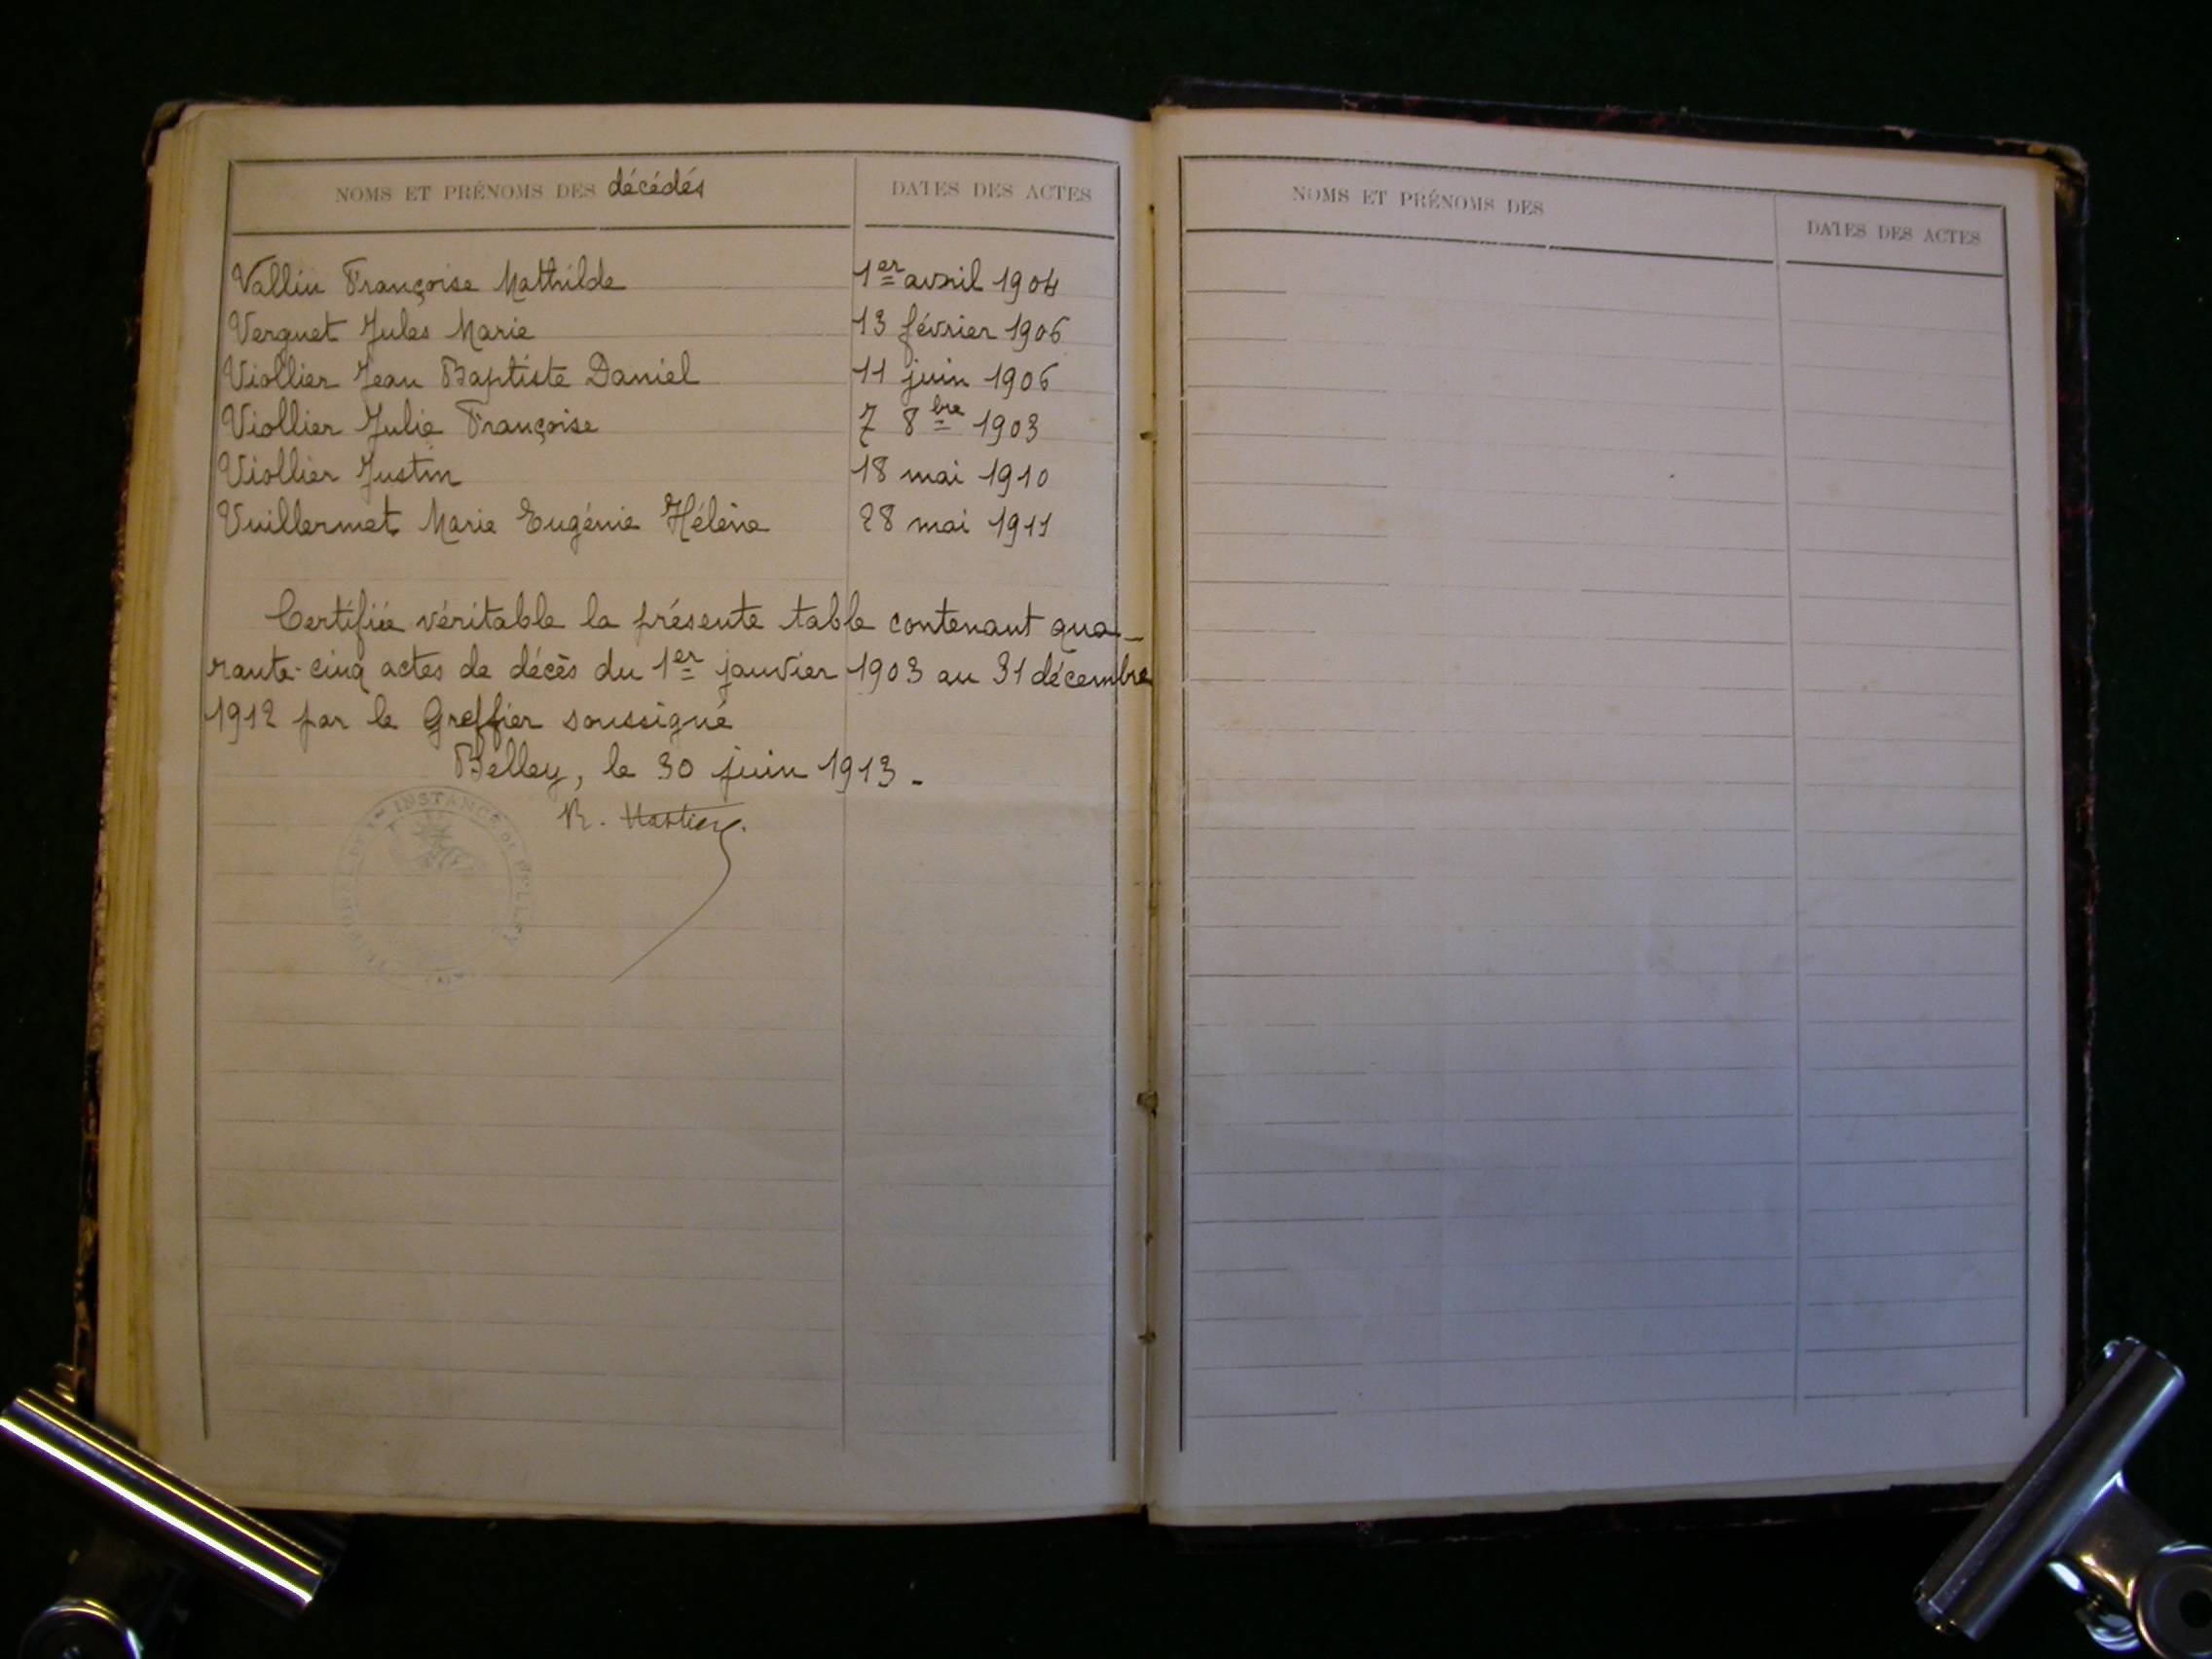 NOMS ET PRÉNOMS DES décédés DATES DES ACTES
Vallin Françoise Mathilde 1er avril 1904
Verguet Jules Marie 13 février 1906
Viollier Jean Baptiste Daniel 11 juin 1906
Viollier Julie Françoise 7 8bre 1903
Viollier Justin 18 mai 1910
Vuillermet Marie Eugénie Hélène 28 mai 1911
Certifiée véritable la présente table contenant qua-
rante-cinq actes de décès du 1er janvier 1903 au 31 décembre
1912 par le Greffier soussigné
Belley, le 30 juin 1913.
R.
TRIBUNAL DE 1re INSTANCE DE BELLEY
NOMS ET PRÉNOMS DES DATES DES ACTES